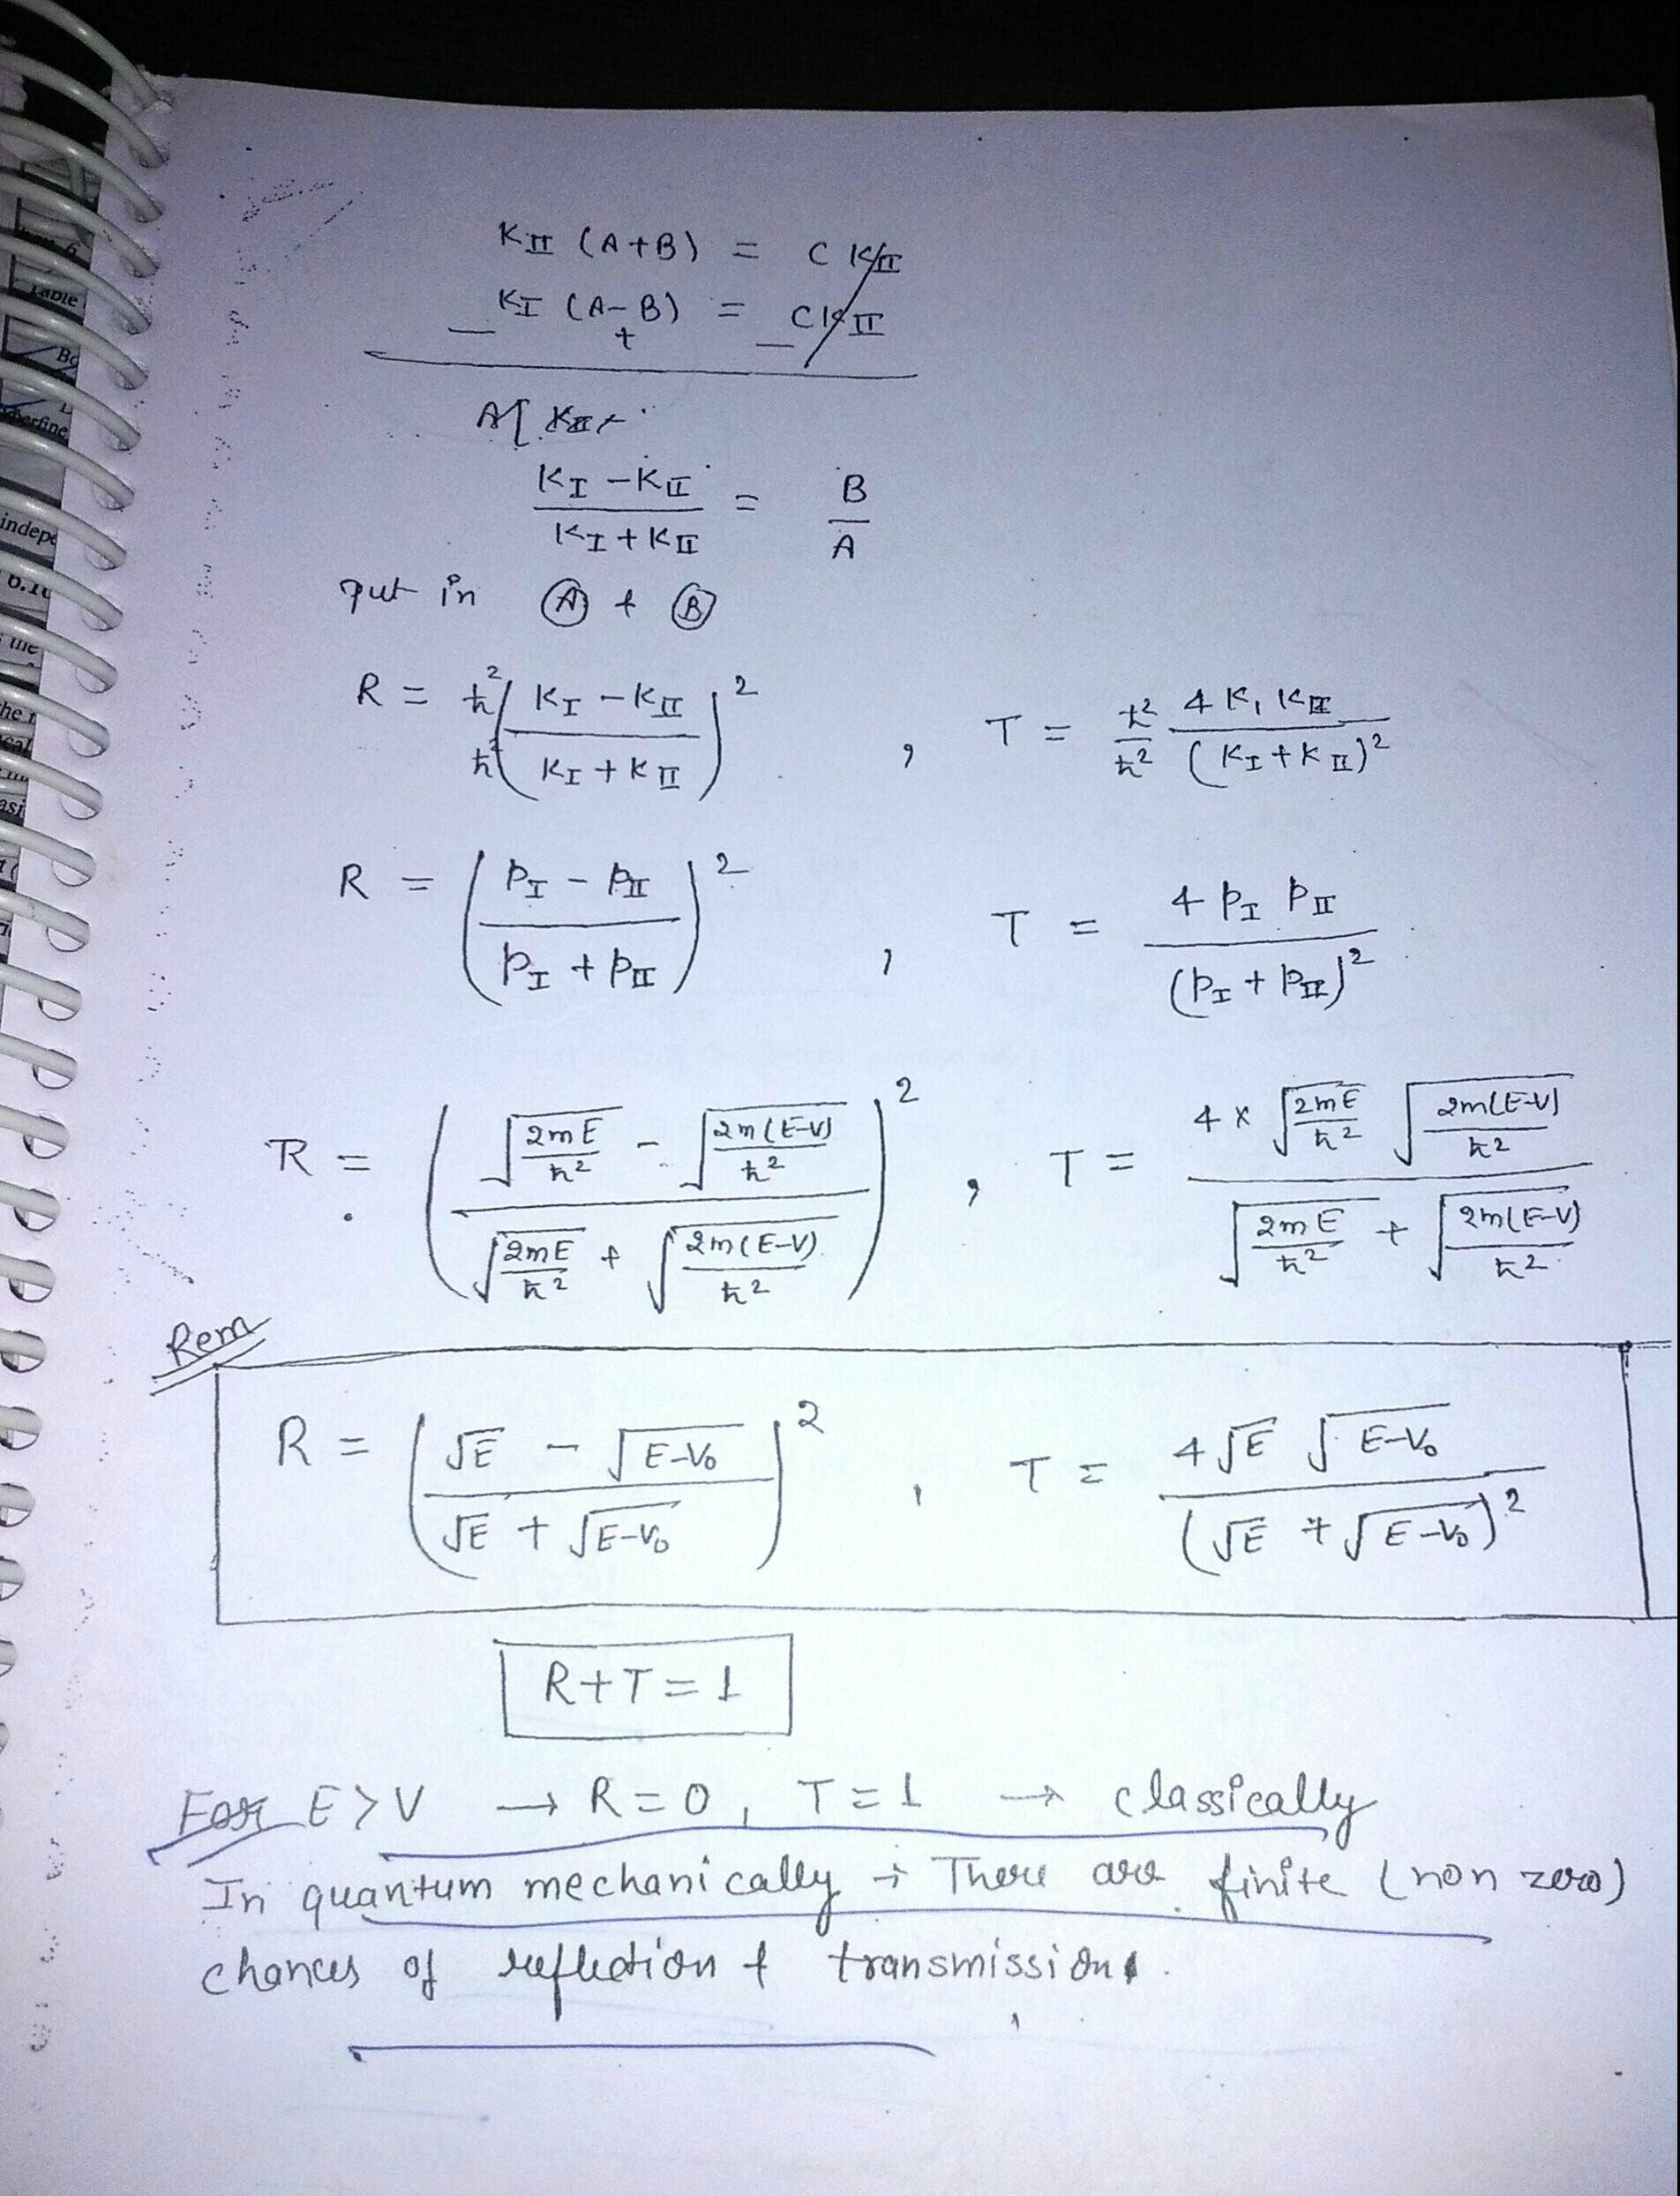 K_II (A+B) = C K_II
K_I (A-B) = C K_II
- + -
A[ K_II +
(K_I - K_II) / (K_I + K_II) = B / A
put in Ⓐ + Ⓑ
R = ħ²/ħ² ((K_I - K_II) / (K_I + K_II))² , T = ħ²/ħ² 4 K_I K_II / (K_I + K_II)²
R = ((p_I - p_II) / (p_I + p_II))² , T = 4 p_I p_II / (p_I + p_II)²
R = ((√(2mE/ħ²) - √(2m(E-V)/ħ²)) / (√(2mE/ħ²) + √(2m(E-V)/ħ²)))² , T = 4 × √(2mE/ħ²) √(2m(E-V)/ħ²) / (√(2mE/ħ²) + √(2m(E-V)/ħ²))
Rem
R = ((√E - √(E-V₀)) / (√E + √(E-V₀)))² , T = 4√E √(E-V₀) / (√E + √(E-V₀))²
R+T=1
For E>V → R=0, T=1 → classically
In quantum mechanically ÷ There are finite (non zero)
chances of reflection + transmission.